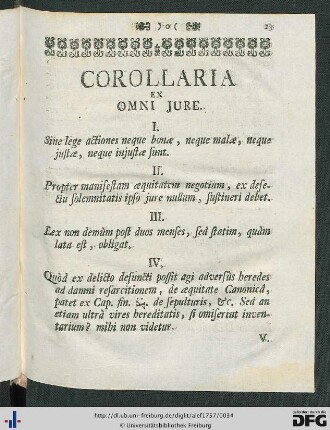 )o( 23
COROLLARIA
EX
OMNI JURE.
I.
Sine lege actiones neque bonæ, neque malæ, neque
justæ, neque injustæ sunt.
II.
Propter manifestam æquitatem negotium, ex defe-
ctu solemnitatis ipso jure nullum, sustineri debet.
III.
Lex non demùm post duos menses, sed statim, quàm
lata est, obligat.
IV.
Quòd ex delicto defuncti possit agi adversùs heredes
ad damni resarcitionem, de æquitate Canonicâ,
patet ex Cap. fin. de sepulturis, &c. Sed an
etiam ultrà vires hereditatis, si omiserint inven-
tarium? mihi non videtur.
V.
http://dl.ub.uni-freiburg.de/diglit/alef1757/0034
© Universitätsbibliothek Freiburg
DFG